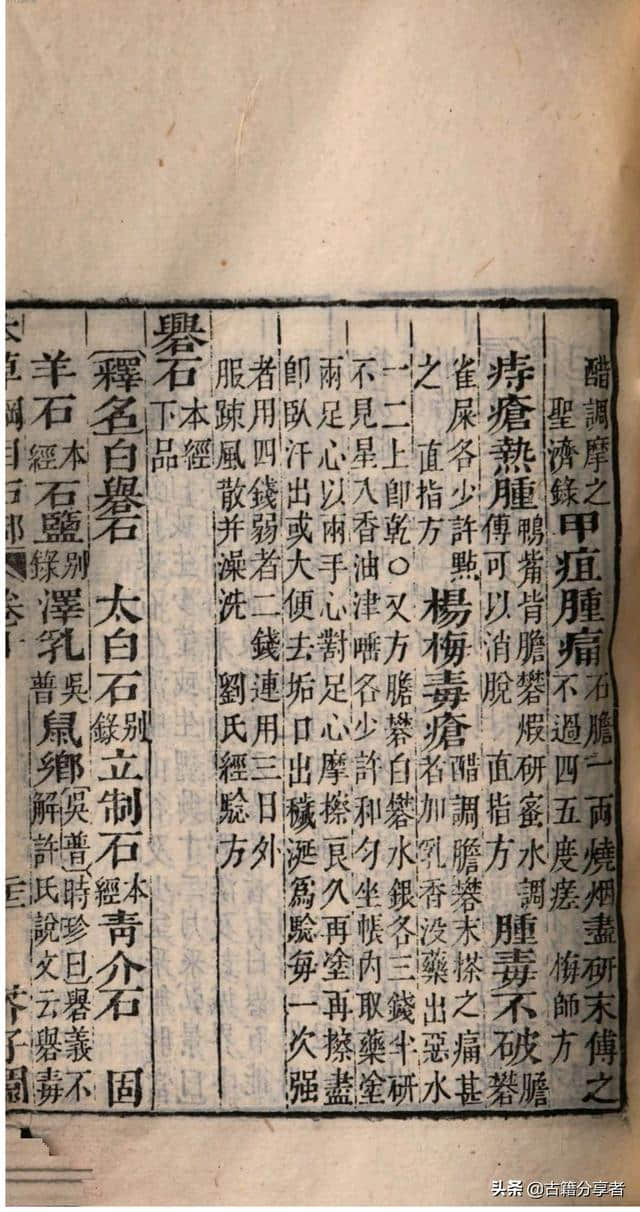 醋調摩之聖濟錄甲疽腫痛石膽一兩燒烟盡研末傅之不過四五度瘥 梅師方
痔瘡熱腫鴨觜青膽礬煅研蜜水調傅可以消脫 直指方腫毒不破膽礬
雀屎各少許點之 直指方楊梅毒瘡醋調膽礬末搽之痛甚者加乳香没藥出惡水
一二上卽乾○又方膽礬白礬水銀各三錢半研
不見星入香油津唾各少許和勻坐帳內取藥塗
兩足心以兩手心對足心摩擦良久再塗再擦盡
卽臥汗出或大便去垢口出穢涎爲驗每一次强
者用四錢弱者二錢連用三日外
服疎風散并澡洗 劉氏經驗方
礜石本經下品
〔釋名白礜石 太白石別錄立制石本經青介石 固
羊石本經石鹽別錄澤乳吳普鼠鄉〔吳普〔時珍曰礜義不解許氏說文云礜毒
本草綱目石部 卷十 芥子園
头条 @古籍分享者